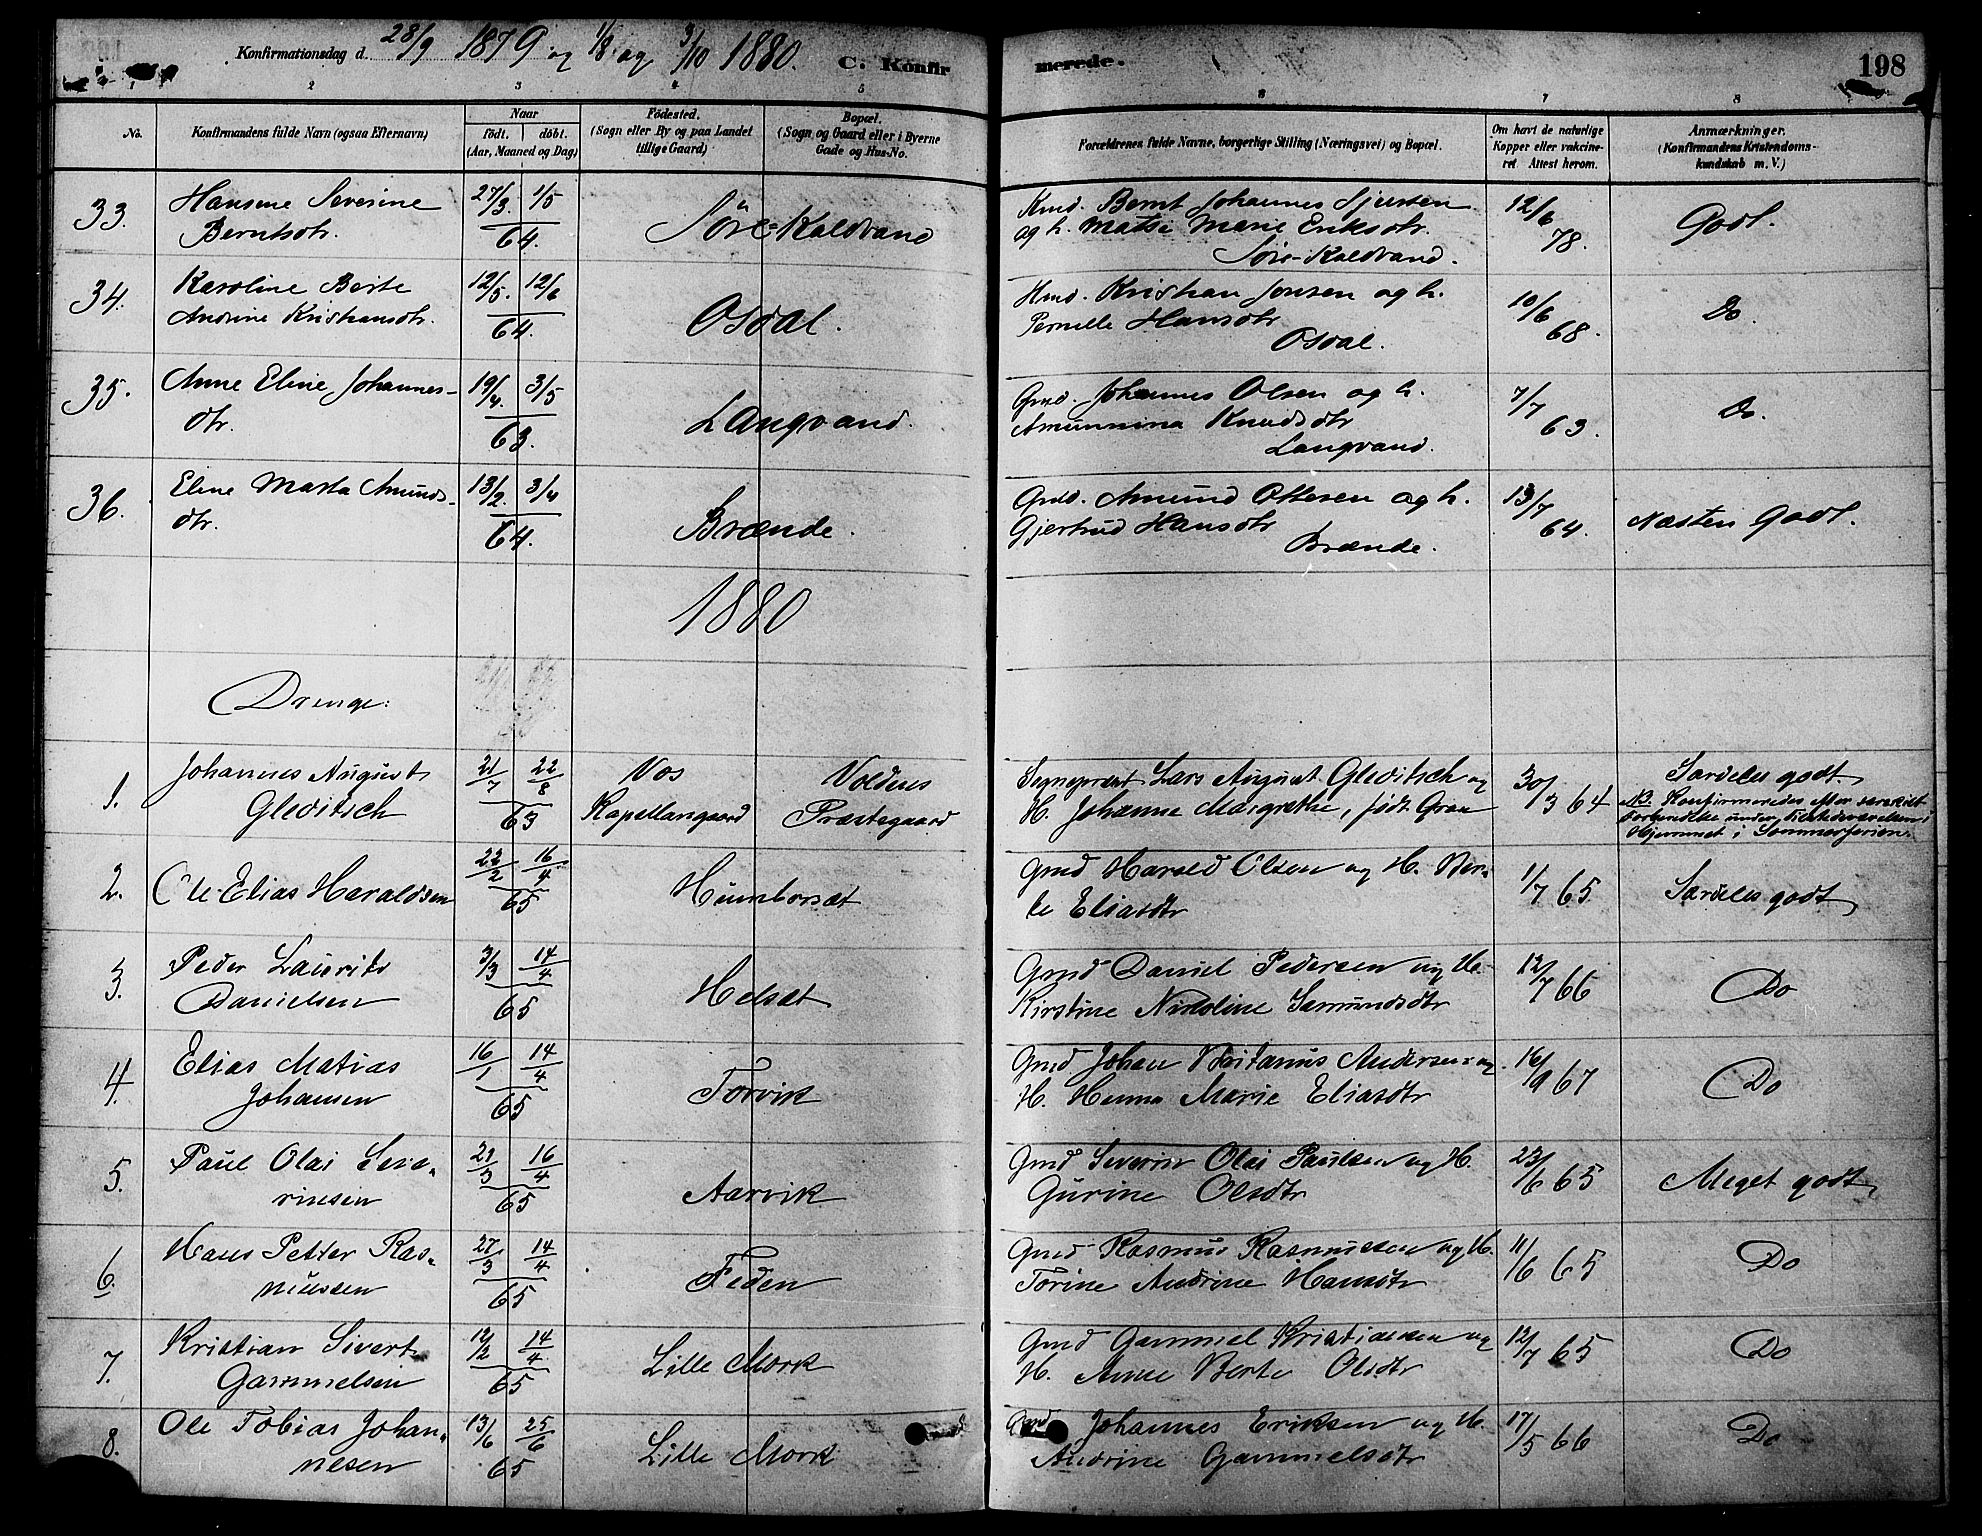 Konfirmationsdag d. 28/9 1879 og 1/8 og 3/10 1880. C. Konfirmerede. 198
1 2 3 4 5 6 7 8
No.
Konfirmandens fulde Navn (ogsaa Efternavn)
Naar
født. døbt.
(Aar, Maaned og Dag)
Fødested.
(Sogn eller By og paa Landet
tillige Gaard)
Bopæl.
(Sogn og Gaard eller i Byerne
Gade og Hus-No.
Forældrenes fulde Navne, borgerlige Stilling (Næringsvei) og Bopæl.
Om havt de naturlige
Kopper eller vakcine-
ret Attest herom.
Anmærkninger.
(Konfirmandens Kristendoms-
kundskab m. V.)
33. Hansine Severine 27/3. 1/5 Søre-Kaldvand Kmd. Bernt Johannes Sjursen 12/6 Godt.
Berntsdtr. 64. og h. Matse Marie Eriksdtr. 78.
Søre-Kaldvand.
34. Karoline Berte 12/5. 12/6 Osdal. Hmd. Kristian Jonsen og h. 10/6 Do.
Andrine Kristiansdtr. 64. Pernille Hansdtr 68.
Osdal.
35. Anne Eline Johannes- 19/4. 3/5 Langvand. Gmd. Johannes Olsen og h. 7/7 Do.
dtr. 63. Amunnina Knudsdtr 63.
Langvand.
36. Eline Marta Amunds- 13/2. 3/4 Brænde. Gmd. Amund Ottesen og h. 13/7 Næsten Godt.
dtr. 64. Gjertrud Hansdtr 64.
Brænde.
1880
Drenge:
1. Johannes August 21/7 22/8 Vos Voldens Sogneprest Lars August Gleditsch og 30/3 64 Særdeles godt.
Gleditsch 63 Kapellangaard Præstegaard H. Johanne Margrethe, født Gran NB. Konfirmeredes efter særskilt
Forberedelse under Tilstedeværelsen i
Hjemmet i Sommerferien.
2. Ole Elias Haraldsen 22/2 16/4 Humborsæt Gmd Harald Olsen og H. Ber- 1/7 65 Særdeles godt
65 te Eliasdtr
3. Peder Laurits 3/3 14/4 Helsæt Gmd Daniel Pedersen og H. 12/7 66 Do
Danielsen 65 Kirstine Nikoline Samundsdtr
4. Elias Matias 16/1 14/4 Torvik Gmd Johan Andersen og 16/9 67 Do
Johansen 65 H. Hanna Marie Eliasdtr
5. Paul Olai Seve- 21/3 16/4 Aarvik Gmd Severin Olai Paulsen og H. 23/6 65 Meget godt
rinsen 65 Gurine Olsdtr
6. Hans Petter Ras- 27/3 14/4 Feden Gmd Rasmus Rasmussen og H. 11/6 65 Do
mussen 65 Torine Andrine Hansdtr
7. Kristian Sivert 12/2 14/4 Lille Mork Gmd Gammel Kristiansen og 12/7 65 Do
Gammelsen 65 H. Anne Berte Olsdtr
8. Ole Tobias Johan- 13/6 25/6 Lille Mork Gmd Johannes Eriksen og H. 17/5 66 Do
nesen 65 Andrine Gammelsdtr